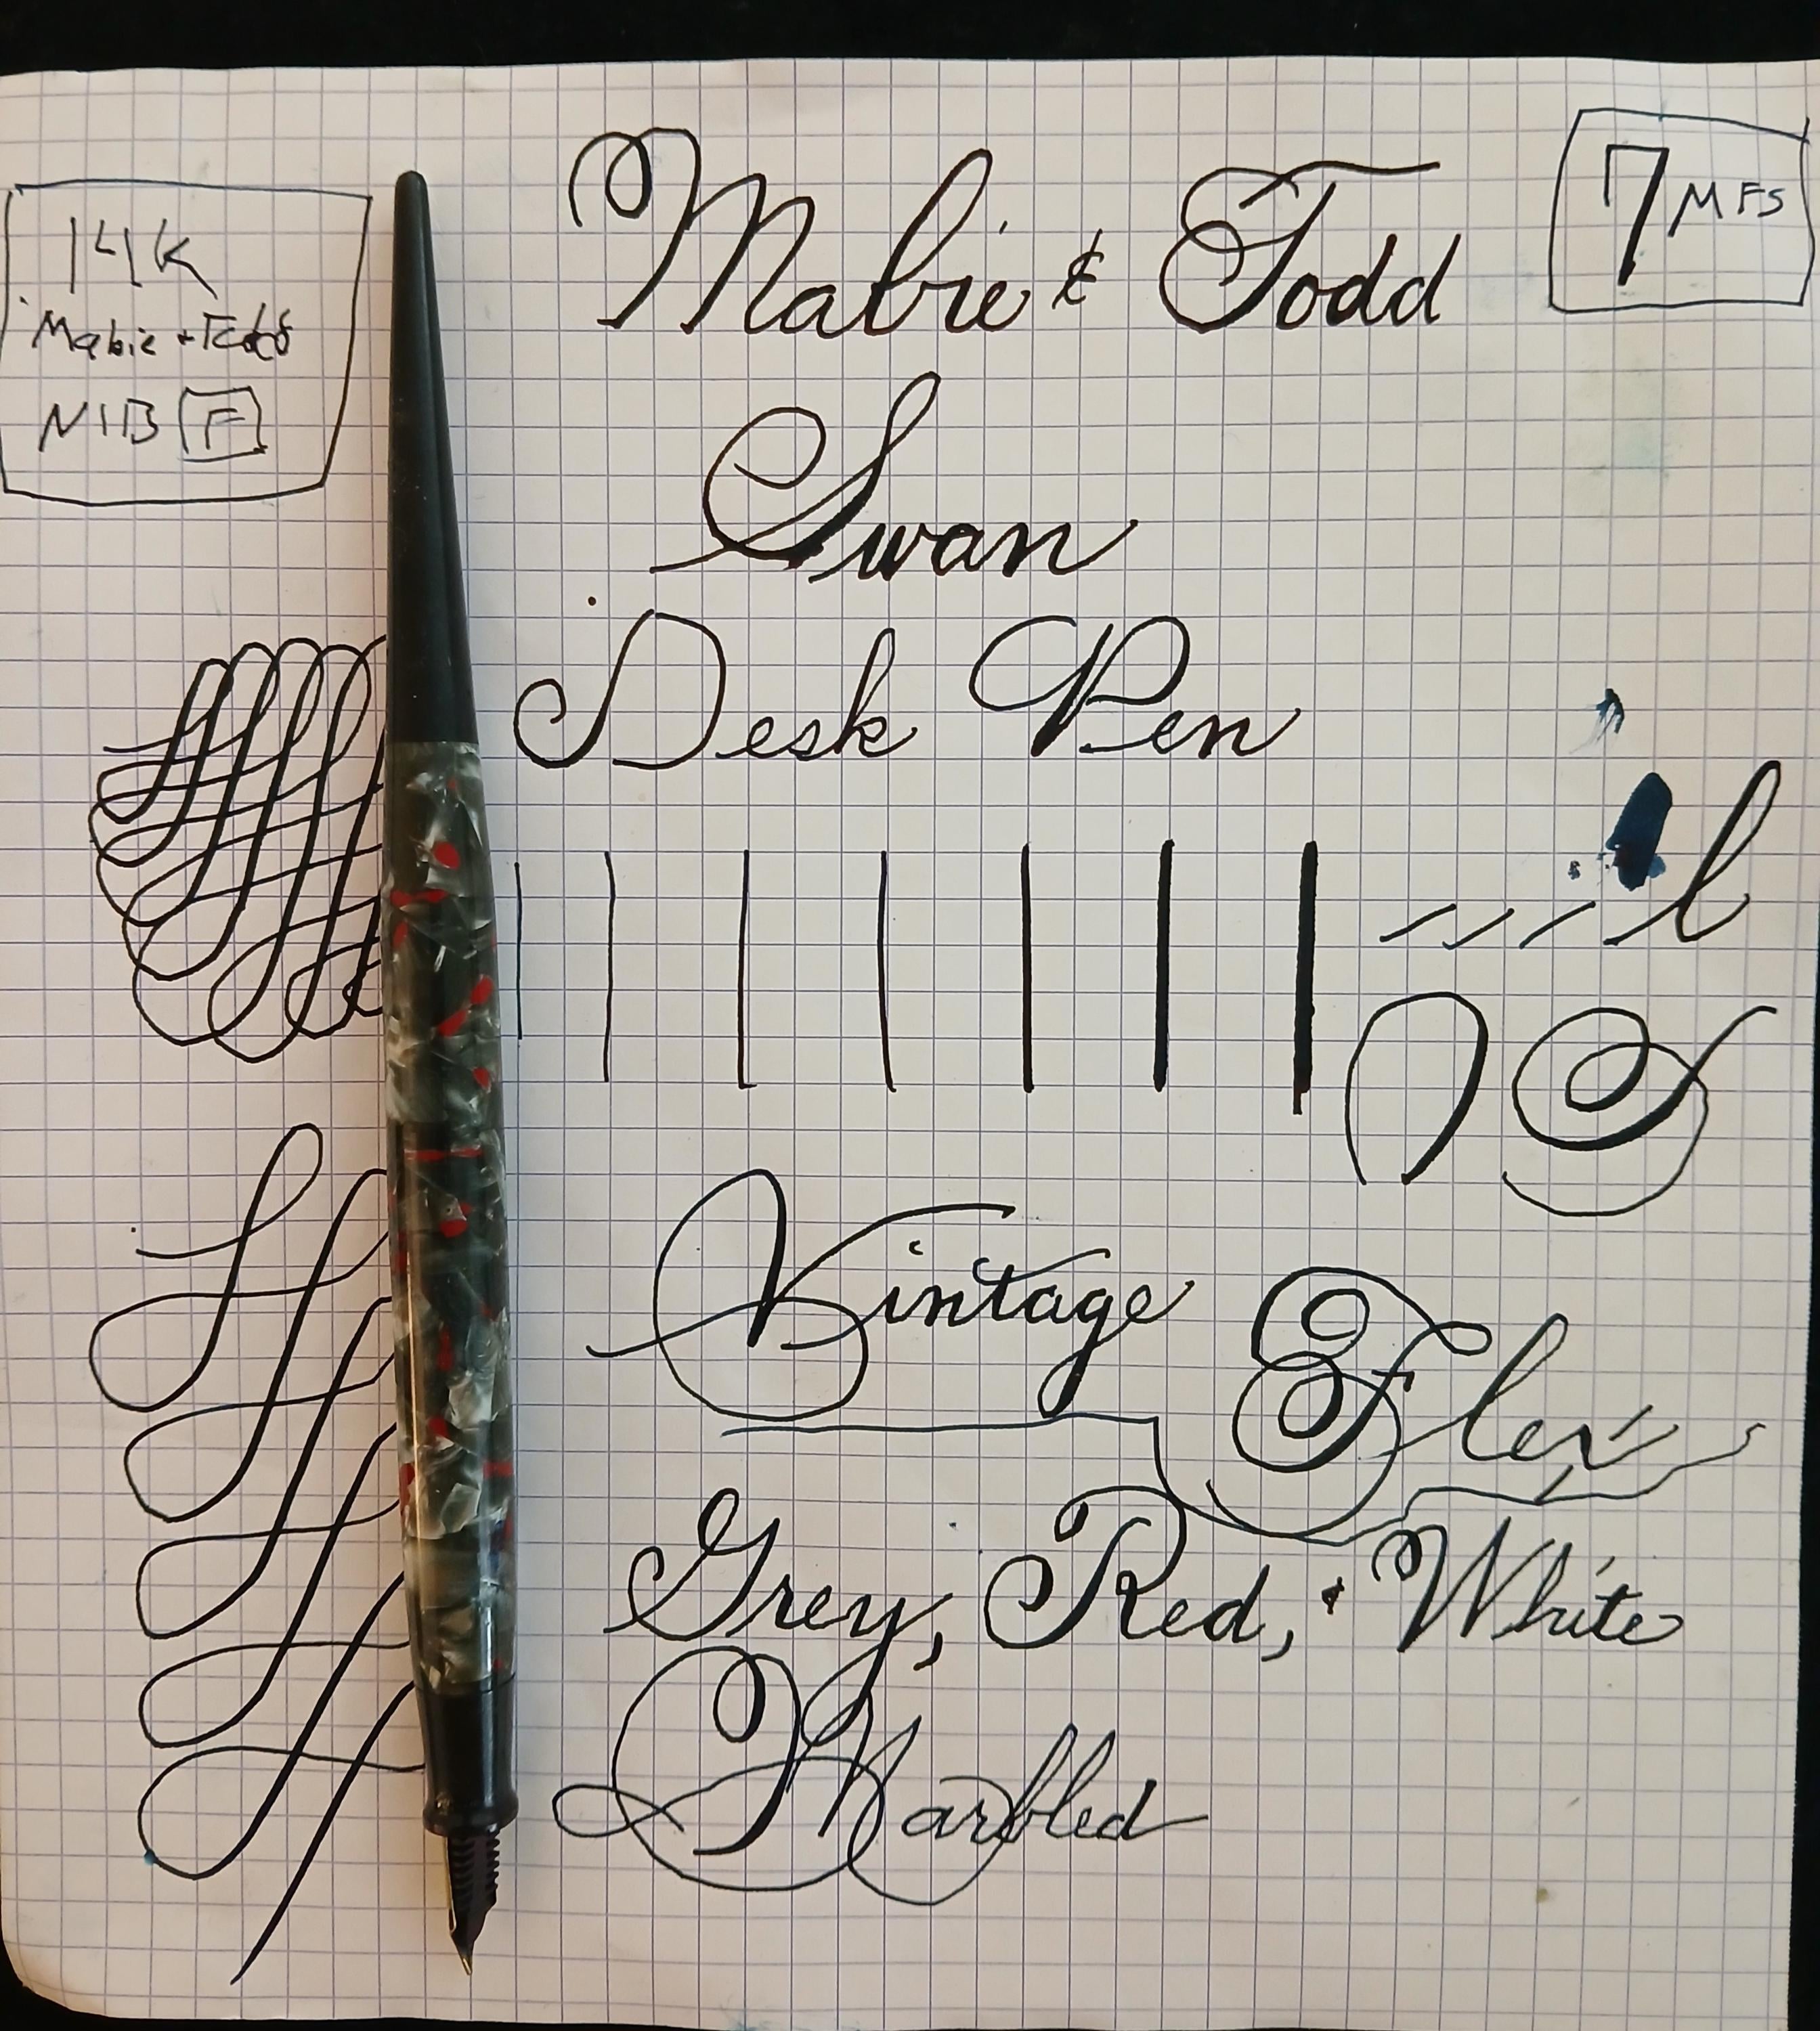 Mabie & Todd
7 MFS
14K
Mabie + Todd
NIB F
Swan
Desk Pen
Vintage
Flex
Grey, Red, & White
Marbled